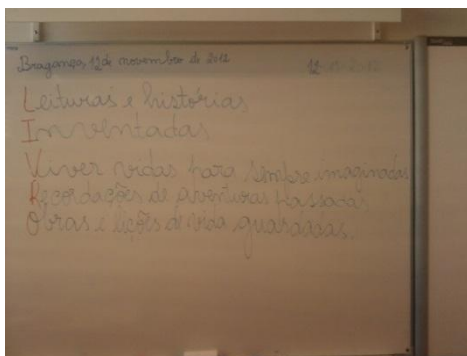 Bragança, 12 de novembro de 2012
Leituras e histórias
Inventadas
Viver vidas para sempre imaginadas
Recordações de aventuras passadas
Obras e lições de vida guardadas.